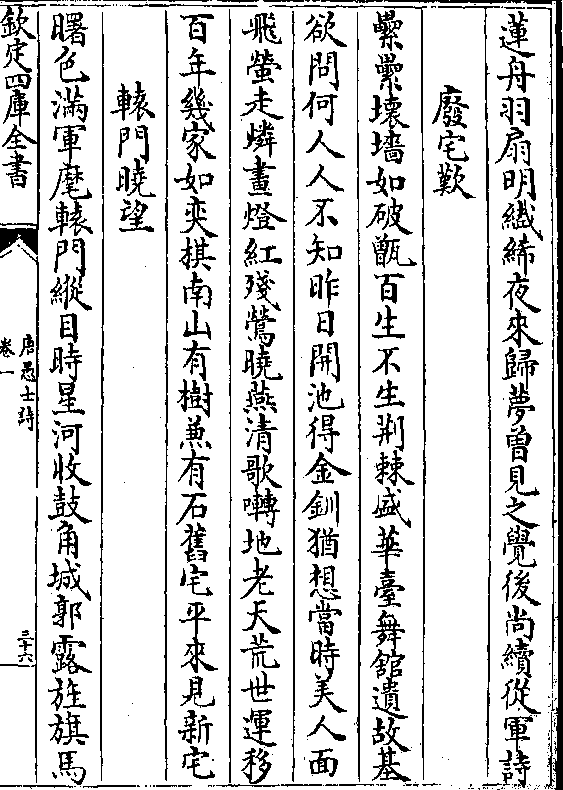 蓮舟羽扇明纎絺夜來歸夢曽見之覺後尚續從軍詩
廢宅歎
纍纍壊墻如破甑百生不生荆棘盛華臺舞舘遺故基
欲問何人人不知昨日開池得金釧猶想當時美人面
飛螢走燐畫燈紅殘鶯曉燕清歌囀地老天荒世運移
百年幾家如奕棋南山有樹兼有石舊宅平來見新宅
轅門曉望
曙色滿軍麾轅門縱目時星河收鼓角城郭露旌旗馬
欽定四庫全書
唐愚士詩
卷一
三十六